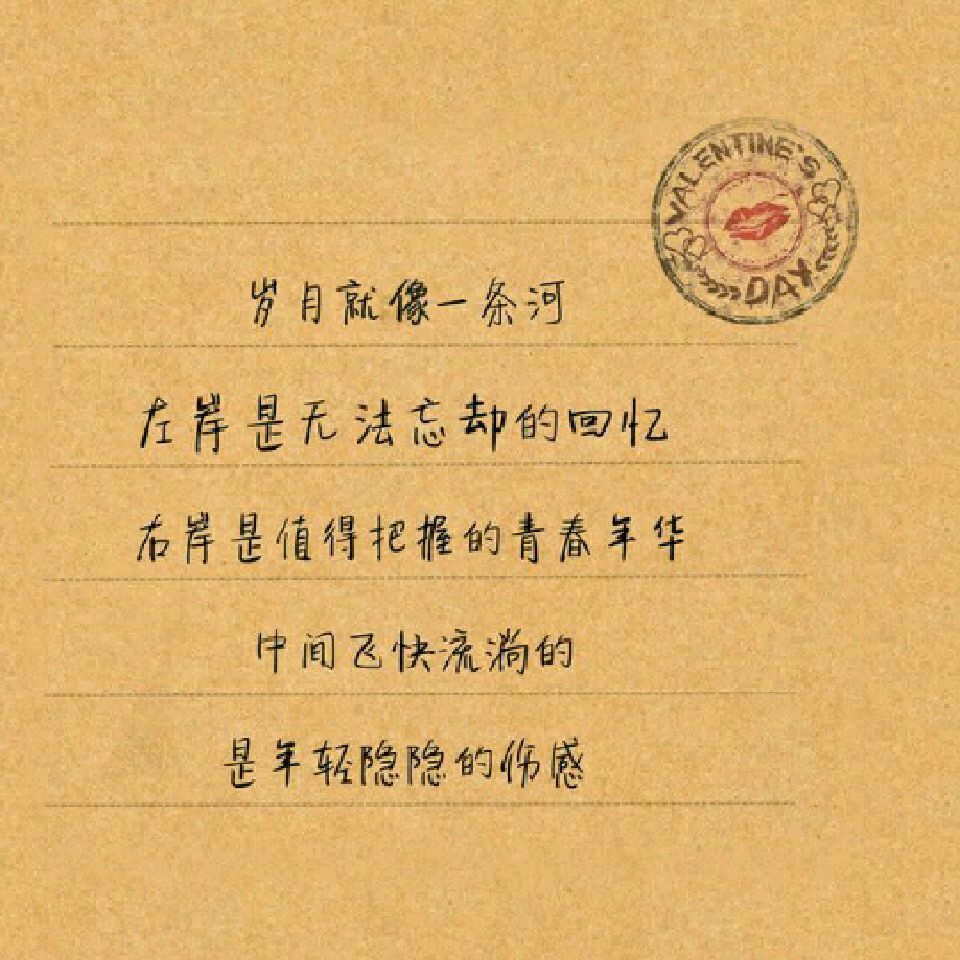 VALENTINE'S
DAY
岁月就像一条河
左岸是无法忘却的回忆
右岸是值得把握的青春年华
中间飞快流淌的
是年轻隐隐的伤感